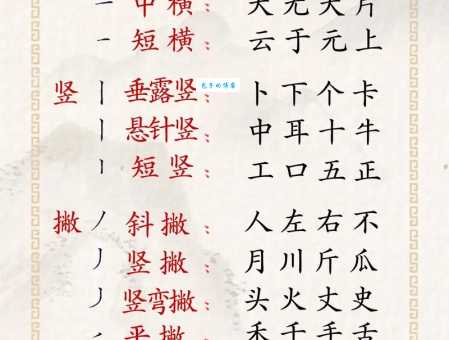 中横： 大 无 天 片
短横： 云 于 元 上
竖 丨 垂露竖： 卜 下 个 卡
丨 悬针竖： 中 耳 十 牛
丨 短竖： 工 口 五 正
撇 丿 斜撇： 人 左 右 不
丿 竖撇： 月 川 斤 瓜
丿 竖弯撇： 头 火 丈 史
平撇： 禾 千 手 舌